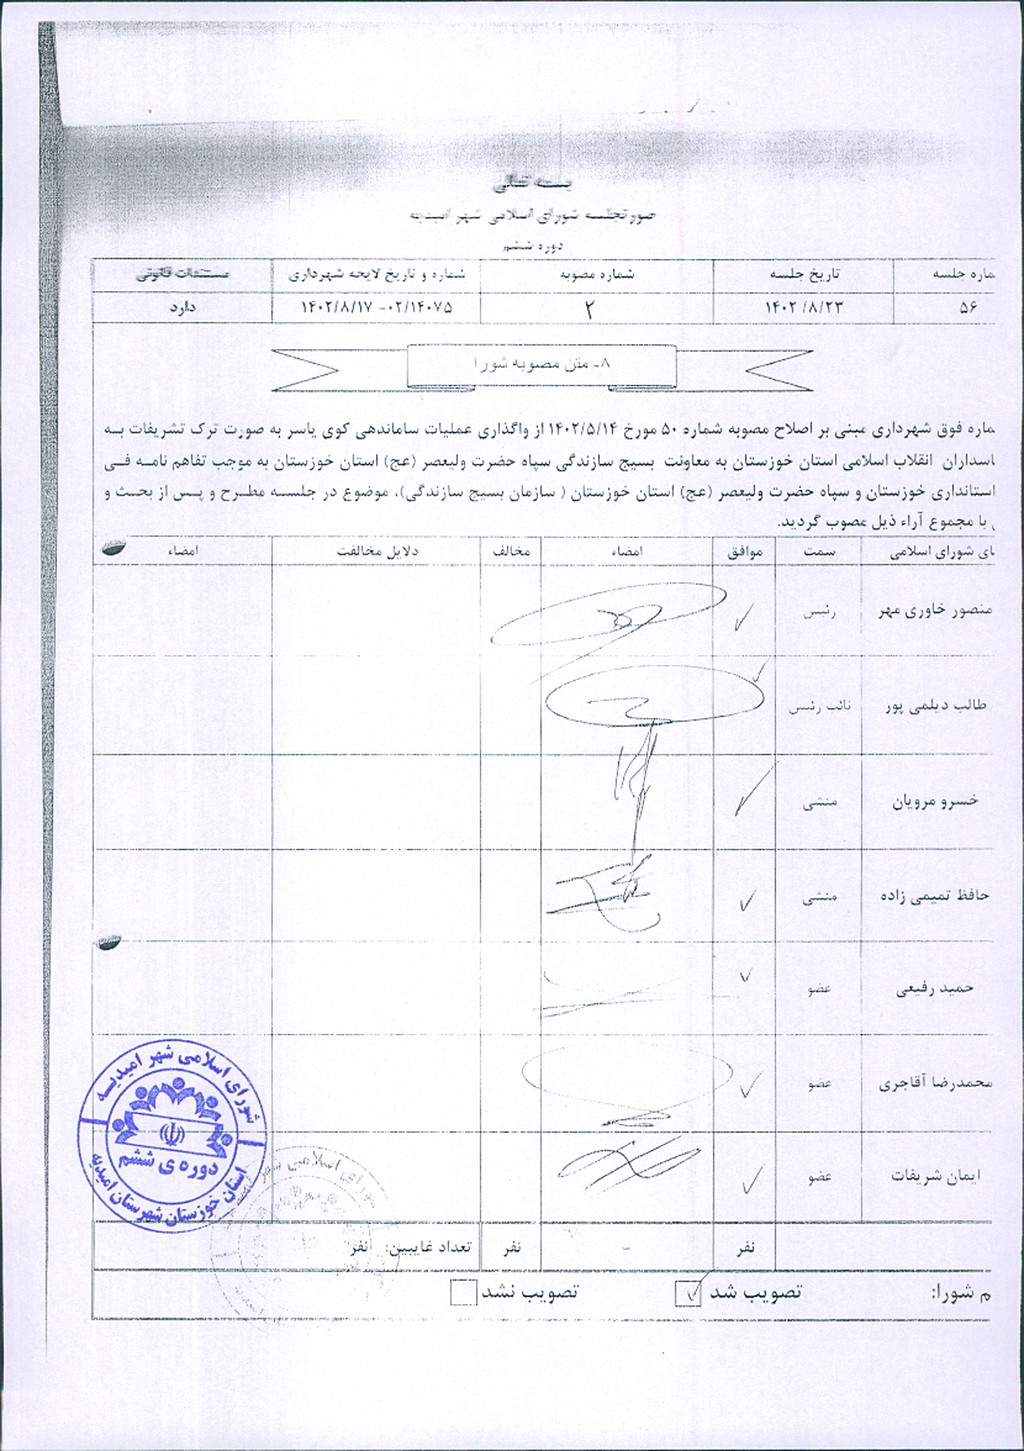 بسمه تعالی
صورتجلسه شورای اسلامی شهر امیدیه
دوره ششم
ماره جلسه تاریخ جلسه شماره مصوبه شماره و تاریخ لایحه شهرداری مستندات قانونی
۵۶ ۱۴۰۲/۸/۲۳ ۲ ۰۲/۱۴۰۷۵- ۱۴۰۲/۸/۱۷ دارد
۸- متن مصوبه شورا
ماره فوق شهرداری مبنی بر اصلاح مصوبه شماره ۵۰ مورخ ۱۴۰۲/۵/۱۴ از واگذاری عملیات ساماندهی کوی یاسر به صورت ترک تشریفات به
اسداران انقلاب اسلامی استان خوزستان به معاونت بسیج سازندگی سپاه حضرت ولیعصر (عج) استان خوزستان به موجب تفاهم نامه فی
استانداری خوزستان و سپاه حضرت ولیعصر (عج) استان خوزستان ( سازمان بسیج سازندگی)، موضوع در جلسه مطرح و پس از بحث و
با مجموع آراء ذیل مصوب گردید.
ای شورای اسلامی سمت موافق امضاء مخالف دلایل مخالفت امضاء
منصور خاوری مهر رئیس
طالب دیلمی پور نائب رئیس
خسرو مرویان منشی
حافظ تمیمی زاده منشی
حمید رفیعی عضو
محمدرضا آقاجری عضو
ایمان شریفات عضو
نفر - نفر تعداد غایبین: نفر
م شورا: تصویب شد تصویب نشد
شورای اسلامی شهر امیدیه
دوره ی ششم
استان خوزستان شهرستان امیدیه